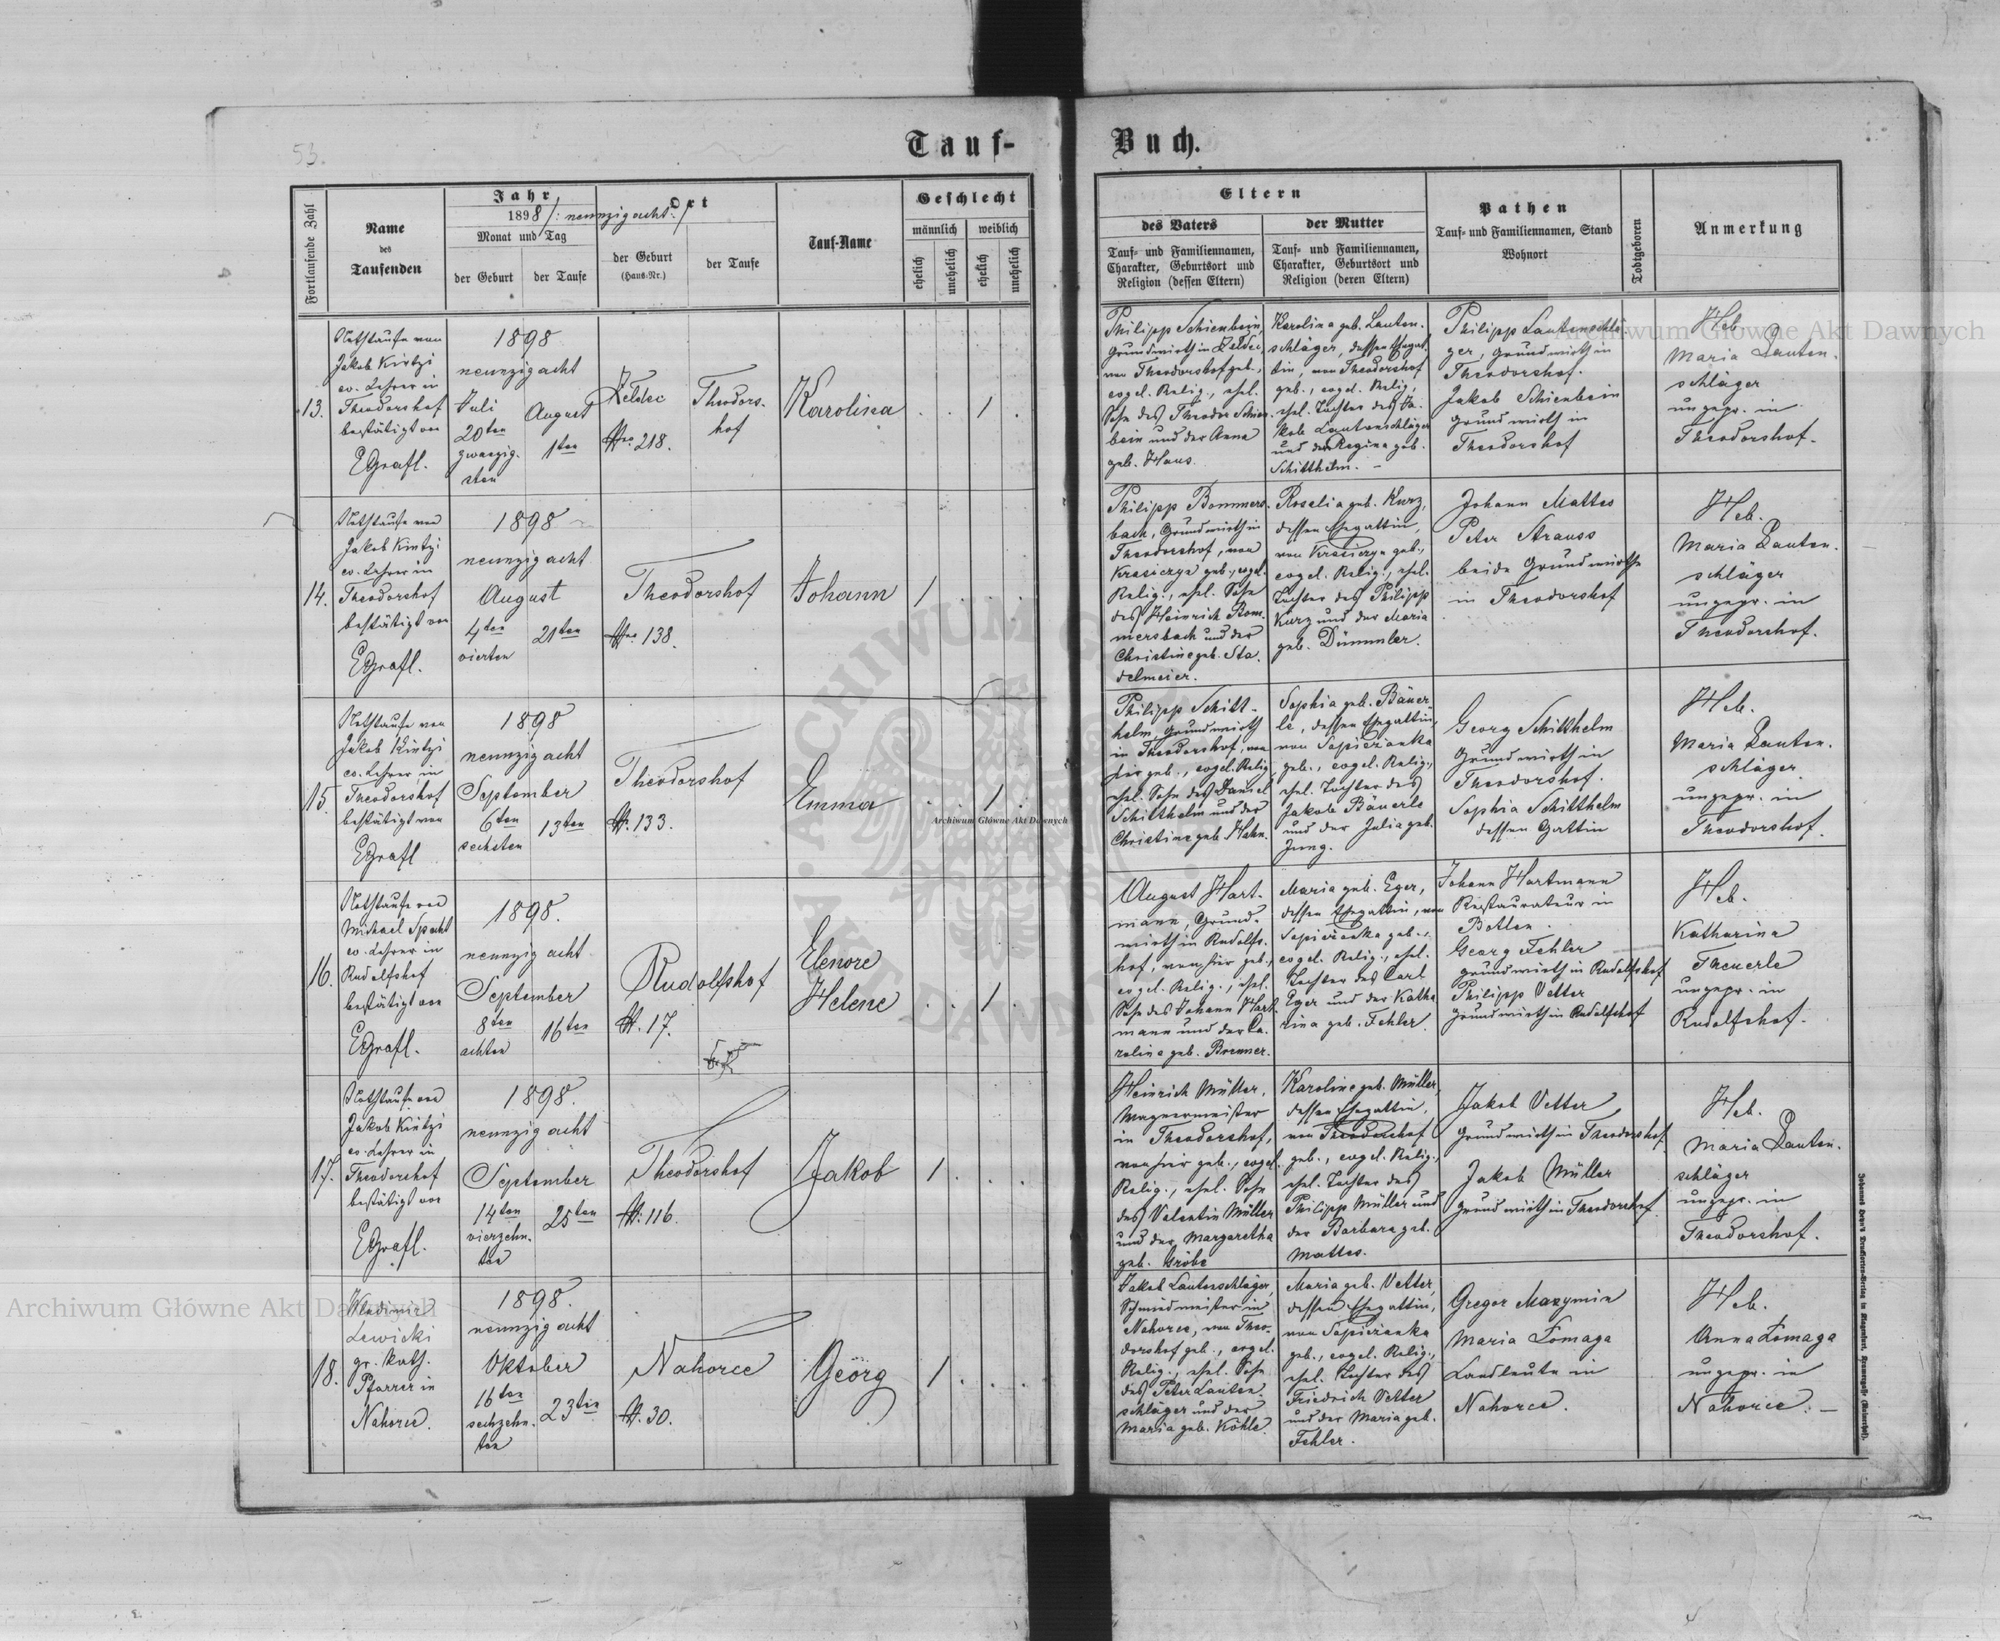 53.
Tauf-
Buch.
Fortlaufende Zahl
Name
des
Taufenden
Jahr
1898 /: neunzig acht :/
Monat und Tag
der Geburt
der Taufe
Ort
der Geburt
(Haus-Nr.)
der Taufe
Tauf-Name
Geschlecht
männlich
weiblich
ehelich
unehelich
ehelich
unehelich
Eltern
des Vaters
Tauf- und Familiennamen,
Charakter, Geburtsort und
Religion (dessen Eltern)
der Mutter
Tauf- und Familiennamen,
Charakter, Geburtsort und
Religion (deren Eltern)
Pathen
Tauf- und Familiennamen, Stand
Wohnort
Todtgeboren
Anmerkung
13.
Nothtaufe von
Jakob Kintzi
ev. Lehrer in
Theodorshof
bestätigt von
EGrafl.
1898
neunzig acht
Juli
20ten
zwanzig-
sten
August
1ten
Zeldec
Nro 218.
Theodors-
hof
Karolina
. . 1 .
Philipp Schienbein,
Grundwirth in Zeldec,
von Theodorshof geb.,
evgel. Relig., ehel.
Sohn des Theodor Schien-
bein und der Anna
geb. Haus.
Karolina geb. Lauten-
schläger, dessen Ehegat-
tin, von Theodorshof
geb., evgel. Relig.,
ehel. Tochter des Ja-
kob Lautenschläger
und der Regina geb.
Schitthelm. -
Philipp Lautenschlä-
ger, Grundwirth in
Theodorshof.
Jakob Schienbein
Grundwirth in
Theodorshof
Heb.
Maria Lauten-
schläger
ungepr. in
Theodorshof.
14.
Nothtaufe von
Jakob Kintzi
ev. Lehrer in
Theodorshof
bestätigt von
EGrafl.
1898
neunzig acht
August
4ten
vierten
21ten
Theodorshof
Nro. 138.
Johann
1 . . .
Philipp Bommers-
bach, Grundwirth in
Theodorshof, von
Krasiczyn geb., evgel.
Relig., ehel. Sohn
des Heinrich Bom-
mersbach und der
Christine geb. Sta-
delmeier.
Roselia geb. Kurz,
dessen Ehegattin,
von Krasiczyn geb.,
evgel. Relig., ehel.
Tochter des Philipp
Kurz und der Maria
geb. Dümmler.
Johann Mattes
Peter Strauss
beide Grundwirthe
in Theodorshof
Heb.
Maria Lauten-
schläger
ungepr. in
Theodorshof.
15.
Nothtaufe von
Jakob Kintzi
ev. Lehrer in
Theodorshof
bestätigt von
EGrafl
1898
neunzig acht
September
6ten
sechsten
13ten
Theodorshof
N. 133.
Emma
. . 1 .
Philipp Schitt-
helm, Grundwirth
in Theodorshof, von
hier geb., evgel. Relig.
ehel. Sohn des Daniel
Schitthelm und der
Christine geb. Hahn.
Sophia geb. Bäuer-
le, dessen Ehegattin,
von Sapieżanka
geb., evgel. Relig.,
ehel. Tochter des
Jakob Bäuerle
und der Julia geb.
Jung.
Georg Schitthelm
Grundwirth in
Theodorshof.
Sophia Schitthelm
dessen Gattin
Heb.
Maria Lauten-
schläger
ungepr. in
Theodorshof.
16.
Nothtaufe von
Michael Specht
ev. Lehrer in
Rudolfshof
bestätigt von
EGrafl.
1898.
neunzig acht
September
8ten
achten
16ten
Rudolfshof
N. 17.
Elenore
Helene
. . 1 .
August Hart-
mann, Grund-
wirth in Rudolfs-
hof, von hier geb.,
evgel. Relig., ehel.
Sohn des Johann Hart-
mann und der Ka-
roline geb. Bremer.
Maria geb. Eger,
dessen Ehegattin, von
Sapieżanka geb.,
evgel. Relig., ehel.
Tochter des Carl
Eger und der Katha-
rina geb. Fehler.
Johann Hartmann
Restaurateur in
Georg Fehler
Grundwirth in Rudolfshof
Philipp Vetter
Grundwirth in Rudolfshof
Heb.
Katharina
Theuerle
ungepr. in
Rudolfshof.
17.
Nothtaufe von
Jakob Kintzi
ev. Lehrer in
Theodorshof
bestätigt von
EGrafl.
1898.
neunzig acht
September
14ten
vierzehn-
ten
25ten
Theodorshof
N. 116.
Jakob
1 . . .
Heinrich Müller,
Wagnermeister
in Theodorshof,
von hier geb., evgel.
Relig., ehel. Sohn
des Valentin Müller
und der Margaretha
geb. Gröbe
Karoline geb. Müller,
dessen Ehegattin,
von Theodorshof
geb., evgel. Relig.,
ehel. Tochter des
Philipp Müller und
der Barbara geb.
Mattes.
Jakob Vetter
Grundwirth in Theodorshof.
Jakob Müller
Grundwirth in Theodorshof.
Heb.
Maria Lauten-
schläger
ungepr. in
Theodorshof.
18.
Wladimir
Lewicki
gr. kath.
Pfarrer in
Nahorce.
1898.
neunzig acht
Oktober
16ten
sechzehn-
ten
23ten
Nahorce
N. 30.
Georg
1 . . .
Jakob Lautenschläger,
Schmiedmeister in
Nahorce, von Theo-
dorshof geb., evgel.
Relig., ehel. Sohn
des Peter Lauten-
schläger und der
Maria geb. Köhle.
Maria geb. Vetter,
dessen Ehegattin,
von Sapieżanka
geb., evgel. Relig.,
ehel. Tochter des
Friedrich Vetter
und der Maria geb.
Fehler.
Gregor Maxymin
Maria Łomaga
Landleute in
Nahorce.
Heb.
Anna Łomaga
ungepr. in
Nahorce. -
Archiwum Główne Akt Dawnych
Archiwum Główne Akt Dawnych
Archiwum Główne Akt Dawnych